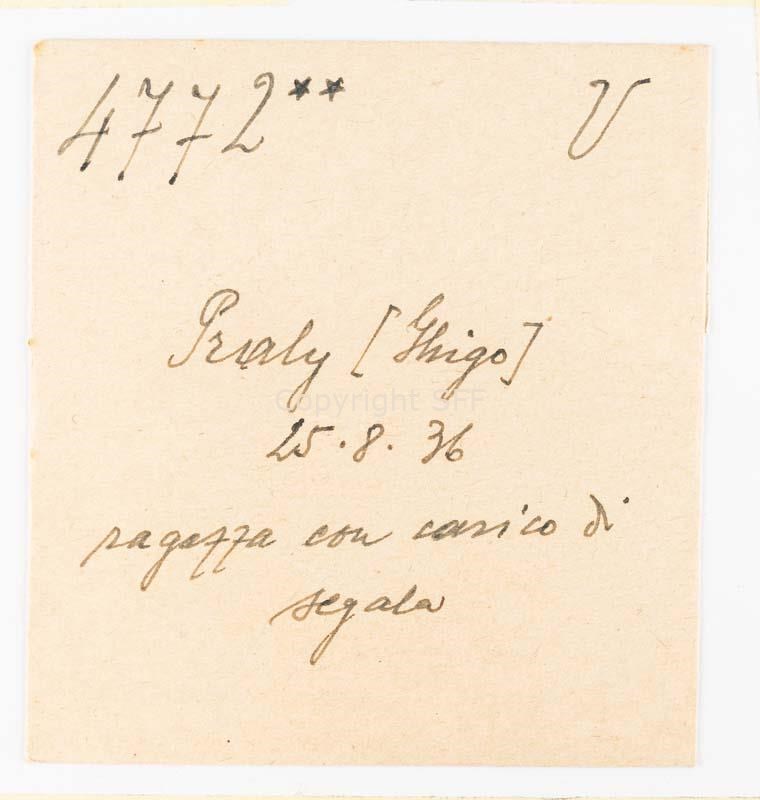 4772** V
Praly [Ghigo]
Copyright SFF
25.8.36
ragezza con carico di
segala